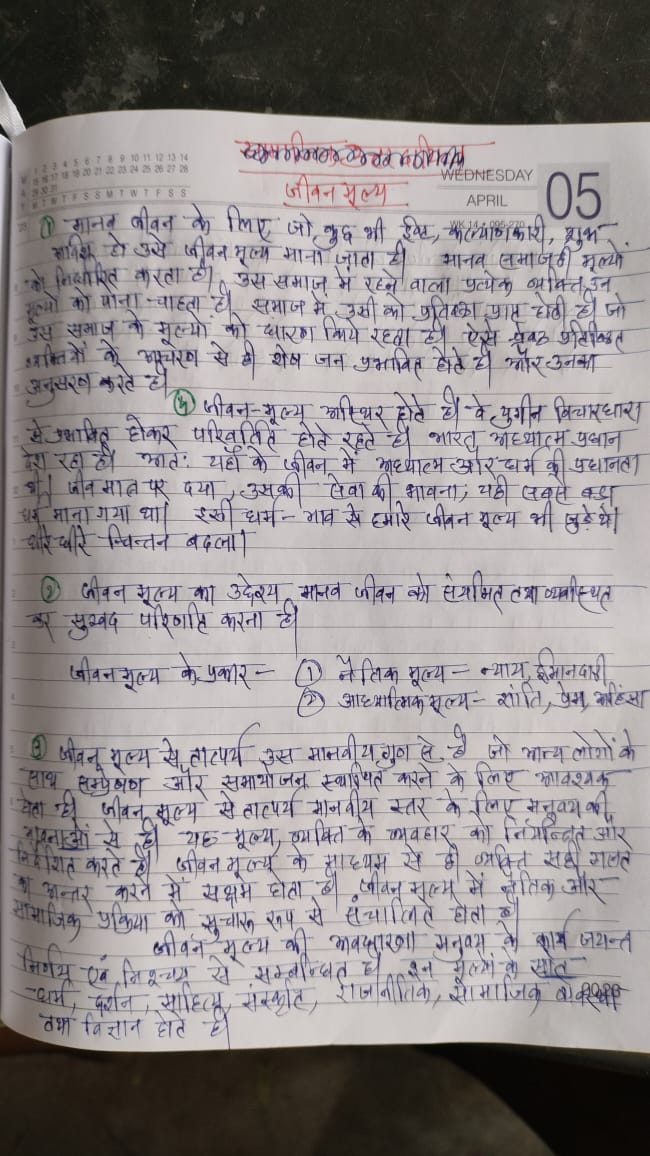 1 2 3 4 5 6 7 8 9 10 11 12 13 14
15 16 17 18 19 20 21 22 23 24 25 26 27 28
29 30 31
T W T F S S M T W T F S S M T W T F S S
WEDNESDAY
APRIL 05
जीवन मूल्य
① मानव जीवन के लिए जो कुछ भी ईष्ट, कल्याणकारी, शुभ
हो उसे जीवन मूल्य माना जाता है। मानव समाजही मूल्यों
को निर्धारित करता है। उस समाज में रहने वाला प्रत्येक व्यक्ति उन
मूल्यों को पाना चाहता है। समाज में उसी को प्रतिष्ठा प्राप्त होती है। जो
उस समाज के मूल्यों को धारण किये रहता है। ऐसे श्रेष्ठ प्रतिष्ठित
व्यक्तियों के आचरण से ही शेष जन प्रभावित होते है। और उनका
अनुसरण करते है।
④ जीवन-मूल्य अस्थिर होते है। वे युगीन विचारधारा
से प्रभावित होकर परिवर्तित होते रहते है। भारत अध्यात्म प्रधान
देश रहा है। अतः यहाँ के जीवन में अध्यात्म और धर्म की प्रधानता
थी। जीव मात्र पर दया, उसकी सेवा की भावना, यही सबसे बड़ा
धर्म माना गया था। इसी धर्म-भाव से हमारे जीवन मूल्य भी जुड़े थे।
धीरे-धीरे चिन्तन बदला।
② जीवन मूल्य का उद्देश्य मानव जीवन को संयमित तथा व्यवस्थित
कर सुखद परिणति करना है।
जीवन मूल्य के प्रकार – ① नैतिक मूल्य – न्याय, ईमानदारी
② आध्यात्मिक मूल्य – शांति, प्रेम, अहिंसा
③ जीवन मूल्य से तात्पर्य उस मानवीय गुण से है जो अन्य लोगों के
साथ सम्प्रेषण और समायोजन स्थापित करने के लिए आवश्यक
होता है। जीवन मूल्य से तात्पर्य मानवीय स्तर के लिए मनुष्य की
भावनाओं से है। यह मूल्य, व्यक्ति के व्यवहार को नियन्त्रित और
निर्देशित करते है। जीवन मूल्य के माध्यम से ही व्यक्ति सही गलत
का अन्तर करने में सक्षम होता है। जीवन मूल्य में नैतिक और
सामाजिक प्रक्रिया को सुचारू रूप से संचालित होता है।
जीवन मूल्य की अवधारणा मनुष्य के कार्य
निर्णय एवं निश्चय से सम्बन्धित है। इन मूल्यों के स्रोत
धर्म, दर्शन, साहित्य, संस्कृति, राजनीतिक, सामाजिक
तथा विज्ञान होते है।